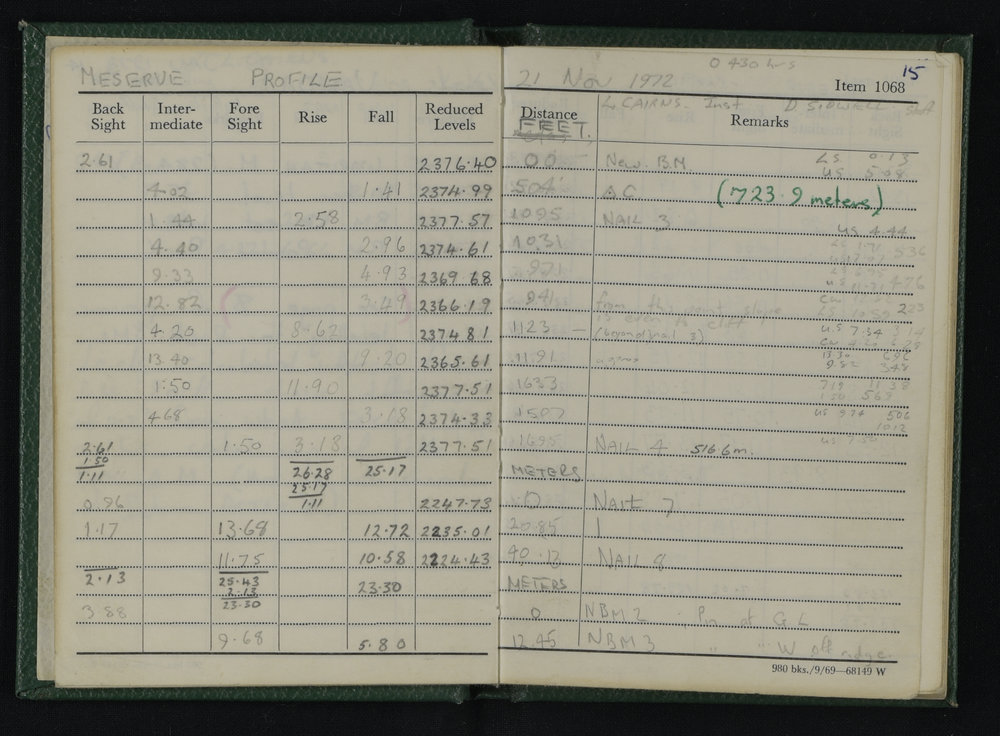 MESERVE PROFILE
Back Sight Inter-mediate Fore Sight Rise Fall Reduced Levels
2.61 2376.40
4.02 1.41 2374.99
1.44 2.58 2377.57
4.40 2.96 2374.61
9.33 4.93 2369 68
12.82 3.49 2366.19
4.20 8.62 2374 81
13.40 9.20 2365.61
1.50 11.90 2377.51
4 68 3.18 2374.33
2.61 1.50 3.18 2377.51
1.50
1.11 26.28 25.17
25.17
1.11
0.96 2247.73
1.17 13.68 12.72 2235.01
11.75 10.58 2224.43
2.13 25.43 23.30
2.13
23.30
3.88
9.68 5.80
0430 hrs
21 Nov 1972 15
Item 1068
L CAIRNS. Inst D. SIDWELL
Distance FEET. Remarks
00 New. B.M. LS 0.13
US 5.08
504 ΔC (723.9 meters)
1095 NAIL 3 US 4.44
1031 536
971 476
941 from this point slope 223
is even to cliff
1123 — (beyond nail 3) US 7.34
1191
1633 719 11 38
1.50 569
1507 US 9 74 506
1012
1695 NAIL 4 516 6m.
METERS
0 NAIL 7
20.85 1
40.13 NAIL 8
METERS
0 NBM 2 Pin at G L
12.45 NBM 3 " " W off ridge.
980 bks./9/69—68149 W